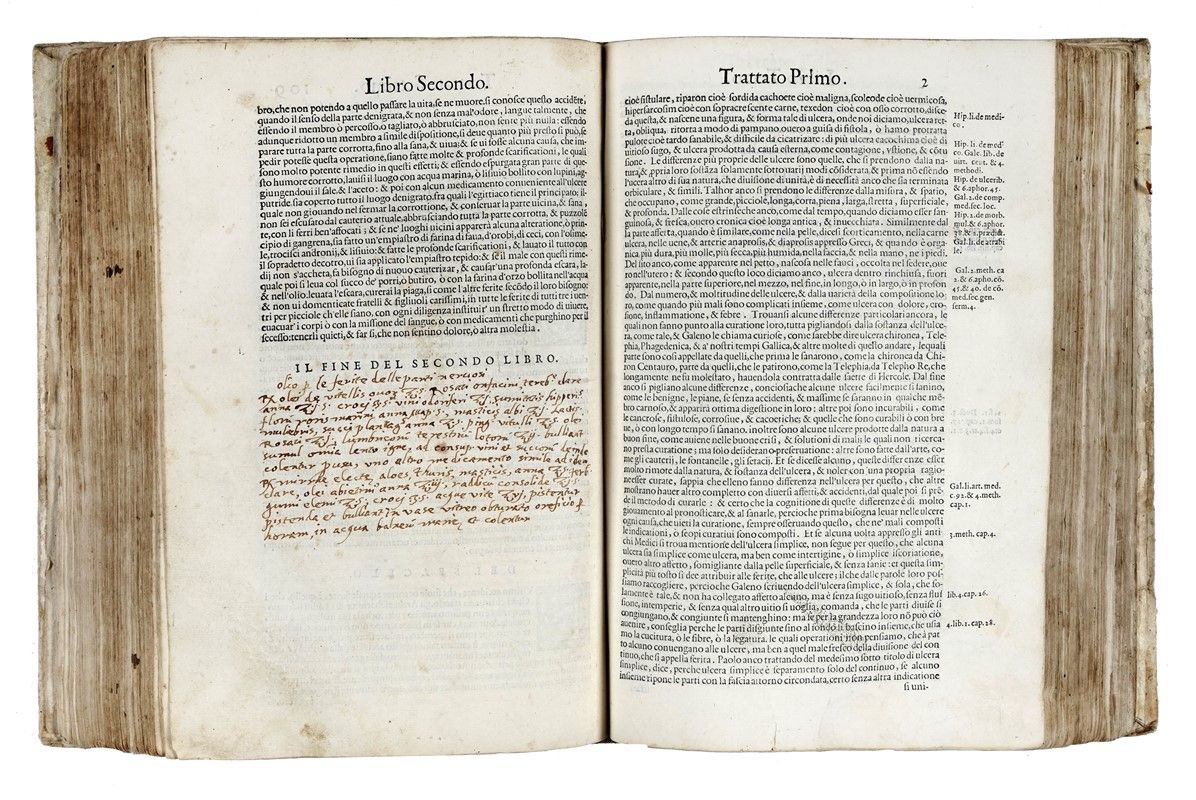 Libro Secondo.
bro, che non potendo a quello passare la uita, se ne muore. si conosce questo accidẽte,
quando il senso della parte denigrata, & non senza mal'odore, langue talmente, che
essendo il membro ò percosso, o tagliato, ò abbrusciato, non sente più nulla: essendo
adunque ridotto un membro a simile dispositione, si deue quanto più presto si può, se
parare tutta la parte corrotta, fino alla sana, & uiua: & se ui fosse alcuna causa, che im-
pedir potesse questa operatione, siano fatte molte & profonde scarificationi, le quali
sono molto potente rimedio in questi effetti; & essendo espurgata gran parte di que-
sto humore corrotto, lauisi il luogo con acqua marina, ò lisiuio bollito con lupini, ag-
giungendoui il sale, & l'aceto: & poi con alcun medicamento conueniente all'ulcere
putride, sia coperto tutto il luogo denigrato, fra quali l'egittiaco tiene il principato: il
quale non giouando nel fermar la corrottione, & conseruar la parte uicina, & sana,
non sei escusato dal cauterio attuale, abbrusciando tutta la parte corrotta, & puzzolē
te, con li ferri ben'affocati; & se ne' luoghi uicini apparerà alcuna alteratione, ò prin-
cipio di gangrena, sia fatto un'empiastro di farina d'faua, d'orobi, di ceci, con l'osime-
le, trocisci androni, & lisiuio: & fatte le profonde scarificationi, & lauato il tutto con
il sopradetto decotto, ui sia applicato l'empiastro tepido: & se il male con questi rime-
dij non s'accheta, fa bisogno di nuouo cauterizar, & causar' una profonda escara, la-
qual poi si leua col succo de' porri, ò butiro, ò con la farina d'orzo bollita nell'acqua
& nell'olio. leuata l'escara, curerai la piaga, si come l'altre ferite secõdo il loro bisogno:
& non ui domenticate fratelli & figliuoli carissimi, in tutte le ferite di tutti tre i uen-
tri per picciole ch'elle siano, con ogni diligenza instituir'un stretto modo di uiuere,
euacuar'i corpi ò con la missione del sangue, ò con medicamenti che purghino per il
secesso: tenerli quieti, & far sì, che non sentino dolore, ò altra molestia.
IL FINE DEL SECONDO LIBRO.
olio p. le ferite delle parti neruosi
olei de vitellis ouor. Rosati onfacini, tereb. clare
anna croci vini odoriferi sumitatis hypperi
florū roris marini anna mastices albi Lactis
muliebris, succi plantag. anna ping. vituli olei
Rosati lumbricoru terestriu lotoru bulliant
simul omia lento igne, ad consup. vini et succoru deinde
colentur pura, uno altro medicamento simile
mirrhae electe, aloes, thuris, masticis, anna
clare, olei abietini anna radicu consolide
gumi elemi croci acque vite pistentur
pistenda et bulliant in vase vitreo obturato orefitio p
horam, in acqua balnei marie, et colentur
Trattato Primo. 2
cioè fistulare, riparon cioè sordida cachoete cioè maligna, scoleode cioè uermicosa,
hipersarcosim cioè con sopracrescente carne, texedon cioè con osso corrotto, disce-
da questa, & nascene una figura, & forma tale di ulcera, onde noi diciamo, ulcera ret-
ta, obliqua, ritorta a modo di pampano, ouero a guisa di fistola, ò hamo protratta
pulore cioè tardo sanabile, & difficile da cicatrizare: di più ulcera cacochima cioè di
uitioso sugo, & ulcera prodotta da causa esterna, come contagione, ustione, & cõtu
sione. Le differenze più proprie delle ulcere sono quelle, che si prendono dalla na-
tura, & ppria loro sostãza solamente sotto uarij modi cõsiderata, & prima nõ essendo
l'ulcera altro di sua natura, che diuisione di unità, è di necessità anco che sia terminata
orbiculare, & simili. Talhor anco si prendono le differenze dalla misura, & spatio,
che occupano, come grande, picciole, longa, corta, piena, larga, stretta, superficiale,
& profonda. Dalle cose estrinseche anco, come dal tempo, quando diciamo esser san-
guinosa, & fresca, ouero cronica cioè longa antica, & inuecchiata. Similmente dal
la parte afferta, quando è similare, come nella pelle, dicesi scorticamento, nella carne
ulcera, nelle uene, & arterie anaprosis, & diaprosis appresso Greci, & quando è orga-
nica più dura, più molle, più secca, più humida, nella faccia, & nella mano, ne i piedi.
Del sito anco, come apparente nel petto, nascosta nelle fauci, occolta nel sedere, oue
ro nell'utero: & secondo questo loco diciamo anco, ulcera dentro rinchiusa, fuori
apparente, nella parte superiore, nel mezzo, nel fine, in longo, ò in largo, ò in profon
dò. Dal numero, & moltitudine delle ulcere, & dalla uarietà della compositione lo-
ro, come quando più mali sono complicati insieme, come ulcera con dolore, ero-
sione, infiammatione, & febre. Trouansi alcune differenze particolari ancora, le
quali non fanno punto alla curatione loro, tutta pigliandosi dalla sostanza dell'ulce-
ra, come tale, & Galeno le chiama curiose, come sarebbe dire ulcera chironea, Tele-
phia, Phagedenica, & a' nostri tempi Gallica, & altre molte di questo andare, le quali
parte sono così appellate da quelli, che prima le sanarono, come la chironea da Chi-
ron Centauro, parte da quelli, che le patirono, come la Telephia, da Telepho Re, che
longamente ne fu molestato, hauendola contratta dalle saette di Hercole. Dal fine
anco si pigliano alcune differenze, conciosiache alcune ulcere facilmente si sanino,
come le benigne, le piane, se senza accidenti, & massime se saranno in qualche mē-
bro carnoso, & apparirà ottima digestione in loro; altre poi sono incurabili, come
le cancrose, fistulose, corrosiue, & cacoeriche; & quelle che sono curabili ò con bre
ue, ò con longo tempo si sanano. inoltre sono alcune ulcere prodotte dalla natura a
buon fine, come auiene nelle buone crisi, & solutioni di mali; le quali non ricerca-
no presta curatione; ma solo desiderano preseruatione: altre sono fatte dall'arte, co-
me gli cauterij, le fontanelle, gli setacij. Et se dicesse alcuno, queste differenze esser
molto rimore dalla natura, & sostanza dell'ulcera, & uoler con una propria ragio-
ne esser curate, sappia che elleno fanno differenza nell'ulcera per questo, che altre
mostrano hauer altro completto con diuersi affetti, & accidenti, dal quale poi si prē-
de il metodo di curarle: & certo che la cognitione di queste differenze è di molto
giouamento al pronosticare, & al sanarle, percioche prima bisogna leuar nelle ulcere
ogni causa, che uieti la curatione, sempre osseruando questo, che ne' mali composti
le indicationi, ò scopi curatiui sono composti. Et se alcuna uolta appresso gli anti-
chi Medici si troua mentione dell'ulcera simplice, non segue per questo, che alcuna
ulcera sia simplice come ulcera, ma ben come intertigine, ò simplice iscoriatione,
ouero altro affetto, somigliante dalla pelle superficiale, & senza sanie: et questa sim-
plicità più tosto si dee attribuir alle ferite, che alle ulcere; il che dalle parole loro pos-
siamo raccogliere, percioche Galeno scriuendo dell'ulcera simplice, & sola, che so-
lamente è tale, & non ha collegato affetto alcuno, ma è senza sugo uitioso, senza flus
sione, intemperie, & senza qual altro uitio si uoglia, comanda, che le parti diuise si
congiungano, & congiunte si mantenghino: ma se per la grandezza loro nõ può ciò
auenire, conseglia perche le parti disgiunte sino al fondo si bascino insieme, che usia
mo la cucitura, ò le fibre, ò la legatura. le quali operationi non pensiamo, che à pat
to alcuno conuengano alle ulcere, ma ben a quel male fresco della diuisione del con
tinuo, che si appella ferita. Paolo anco trattando del medesimo sotto titolo di ulcera
simplice, dice, perche ulcera simplice è separamento solo del continuo, se alcuno
insieme ripone le parti con la fascia attorno circondata, certo senza altra indicatione
si uni-
Hip. li. de medi-
co.
Hip. li. de med'
co. Gale. lib. de
uirt. cent. & 4.
methodi.
Hip. de ulcerib.
& 6. aphor. 45.
Gal. 2. de comp.
med. sec. loc.
Hip. 2. de morb.
mul. & 6. aphor.
Gal. li. de atrabi
le.
Gal. 2. meth. ca
2. & 6. apho. cõ.
45. & 40. de cõ.
med. sec. gen.
serm. 4.
Gal. li. art. med.
c. 92. & 4. meth.
cap. 1.
3. meth. cap. 4.
lib. 4. cap. 26.
4. lib. 1. cap. 28.